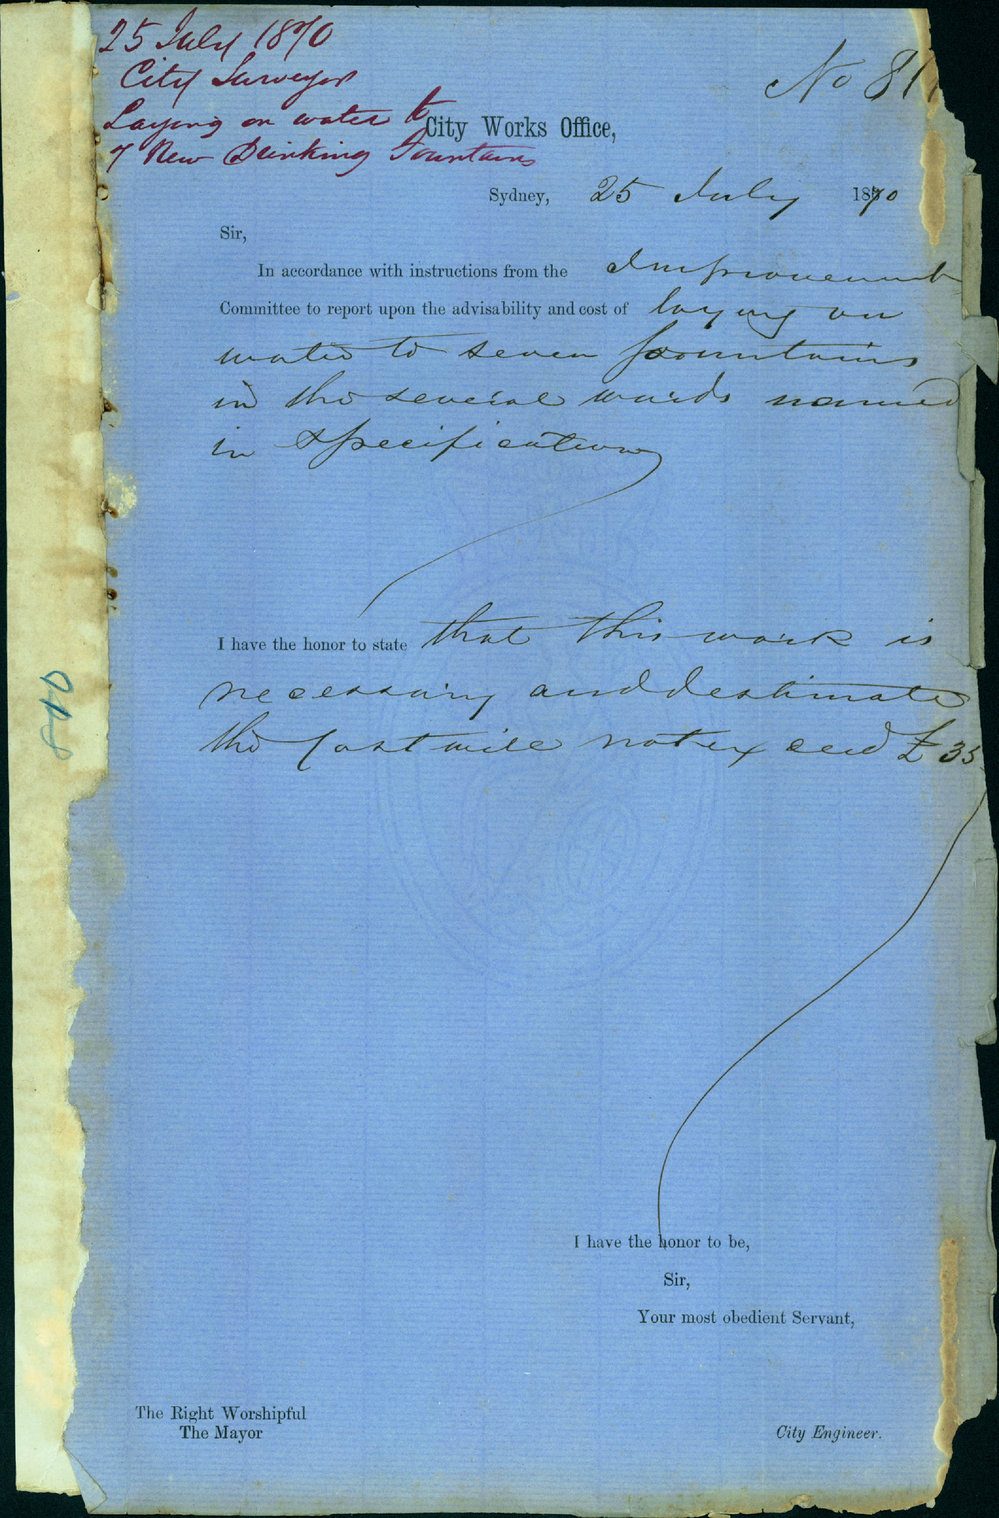 25 July 1870
City Surveyor
Laying on water to
7 New Drinking Fountains
No 81
City Works Office,
Sydney, 25 July 1870
Sir,
In accordance with instructions from the Improvement
Committee to report upon the advisability and cost of laying on
water to seven fountains
in the several wards named
in specification
I have the honor to state that this work is
necessary and destimate
the Cost will not exceed £35
I have the honor to be,
Sir,
Your most obedient Servant,
The Right Worshipful
The Mayor
City Engineer.